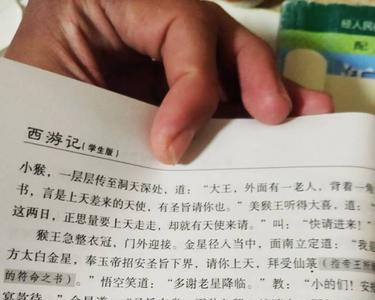 轻人民
配
西游记(学生版)
小猴，一层层传至洞天深处，道：“大王，外面有一老人，背着一角
书，言是上天差来的天使，有圣旨请你也。”美猴王听得大喜，道：“
这两日，正思量要上天走走，却就有天使来请。”叫：“快请进来！”
猴王急整衣冠，门外迎接。金星径入当中，面南立定道：“我是
方太白金星，奉玉帝招安圣旨下界，请你上天，拜受仙箓(指帝王所
的符命之书)。”悟空笑道：“多谢老星降临。”教：“小的们！安排
宴款待。”金星道：